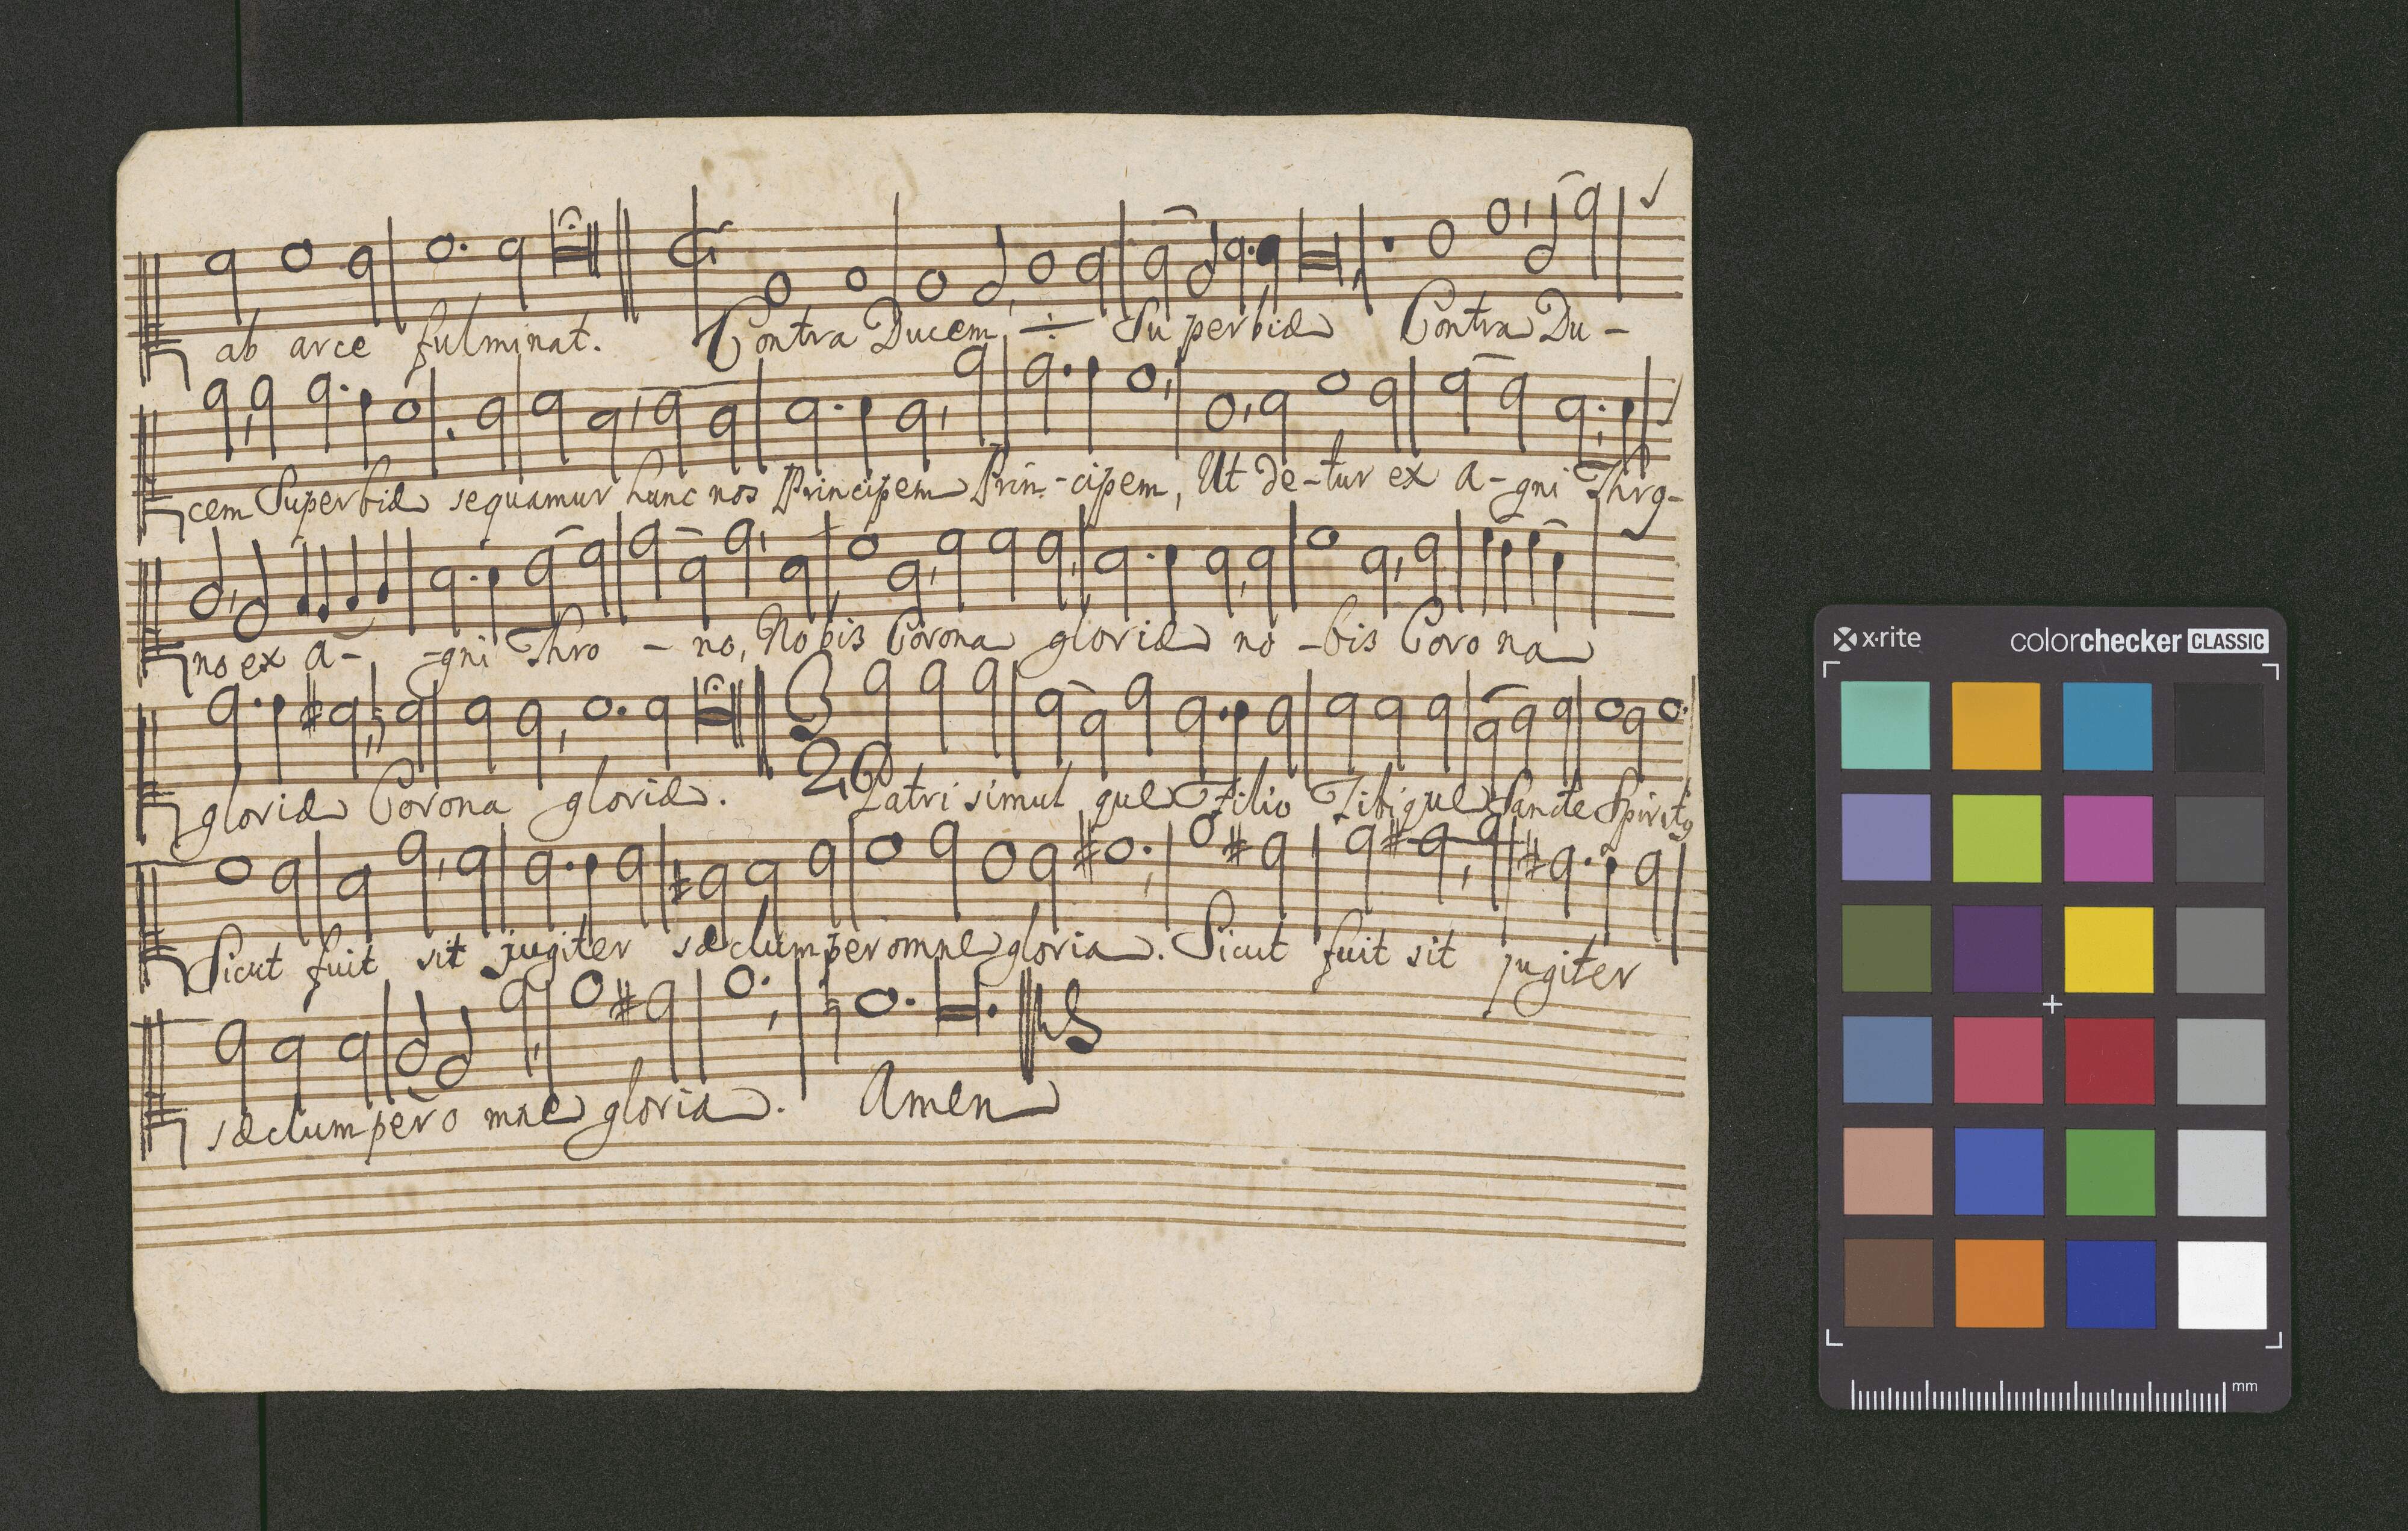 ab arce fulminat. Contra Ducem ÷ Superbiæ Contra Du-
cem Superbiæ sequamur hunc nos Principem Prin-cipem, Ut de-tur ex a-gni Thro-
no ex a- -gni Thro - no, Nobis Corona gloriæ no -bis Corona
gloriæ Corona gloriæ. Patri simul que Filio Tibique Sancte Spiritus
Sicut fuit sit jugiter sæclum per omne gloria. Sicut fuit sit jugiter
sæclum per omne gloria. Amen
x·rite colorchecker CLASSIC
mm